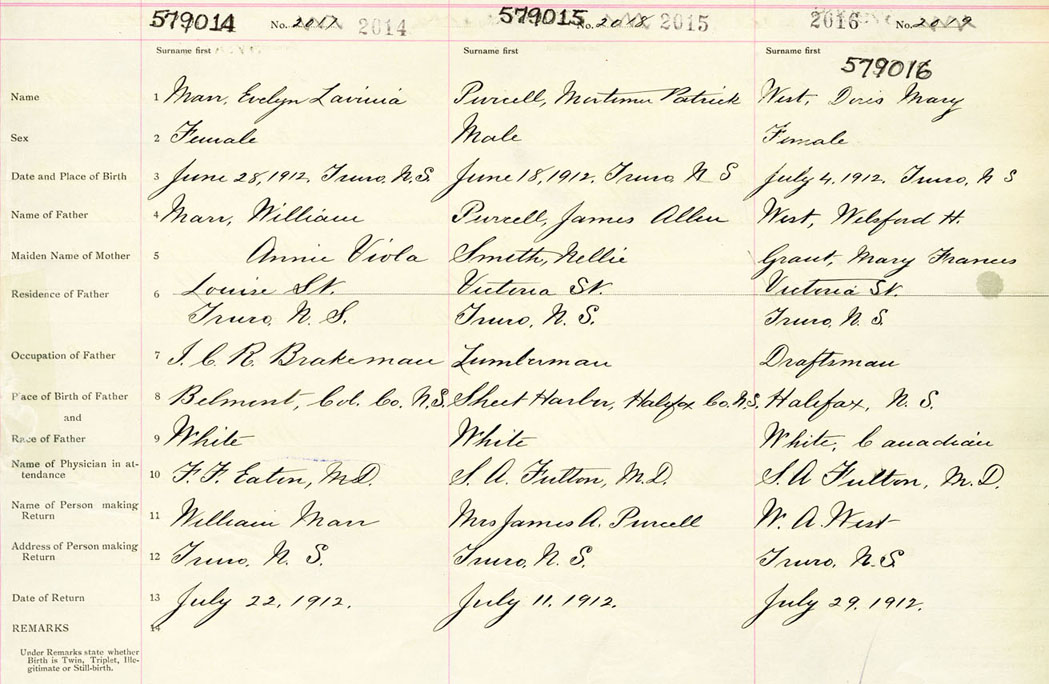 579014 No. 2017 2014 579015 No. 2018 2015 2016 No. 2019
Surname first Surname first Surname first
579016
Name 1 Marr, Evelyn Lavinia Purcell, Mortimer Patrick West, Doris Mary
Sex 2 Female Male Female
Date and Place of Birth 3 June 28, 1912. Truro, N.S. June 18, 1912. Truro N S July 4, 1912. Truro, N S
Name of Father 4 Marr, William Purcell, James Allen West, Welsford H.
Maiden Name of Mother 5 Annie Viola Smith, Nellie Grant, Mary Frances
Residence of Father 6 Louise St. Victoria St. Victoria St.
Truro, N. S. Truro, N. S. Truro, N. S.
Occupation of Father 7 I. C. R. Brakeman Lumberman Draftsman
Place of Birth of Father 8 Belmont, Col. Co. N.S. Sheet Harbor, Halifax Co. N.S. Halifax, N. S.
and
Race of Father 9 White White White, Canadian
Name of Physician in at-
tendance 10 F. F. Eaton, M.D. S. A. Fulton, M.D. S. A Fulton, M. D.
Name of Person making
Return 11 William Marr Mrs James A. Purcell W. A. West
Address of Person making
Return 12 Truro, N. S. Truro, N. S. Truro, N. S
Date of Return 13 July 22, 1912. July 11, 1912. July 29, 1912.
REMARKS 14
Under Remarks state whether
Birth is Twin, Triplet, Ille-
gitimate or Still-birth.